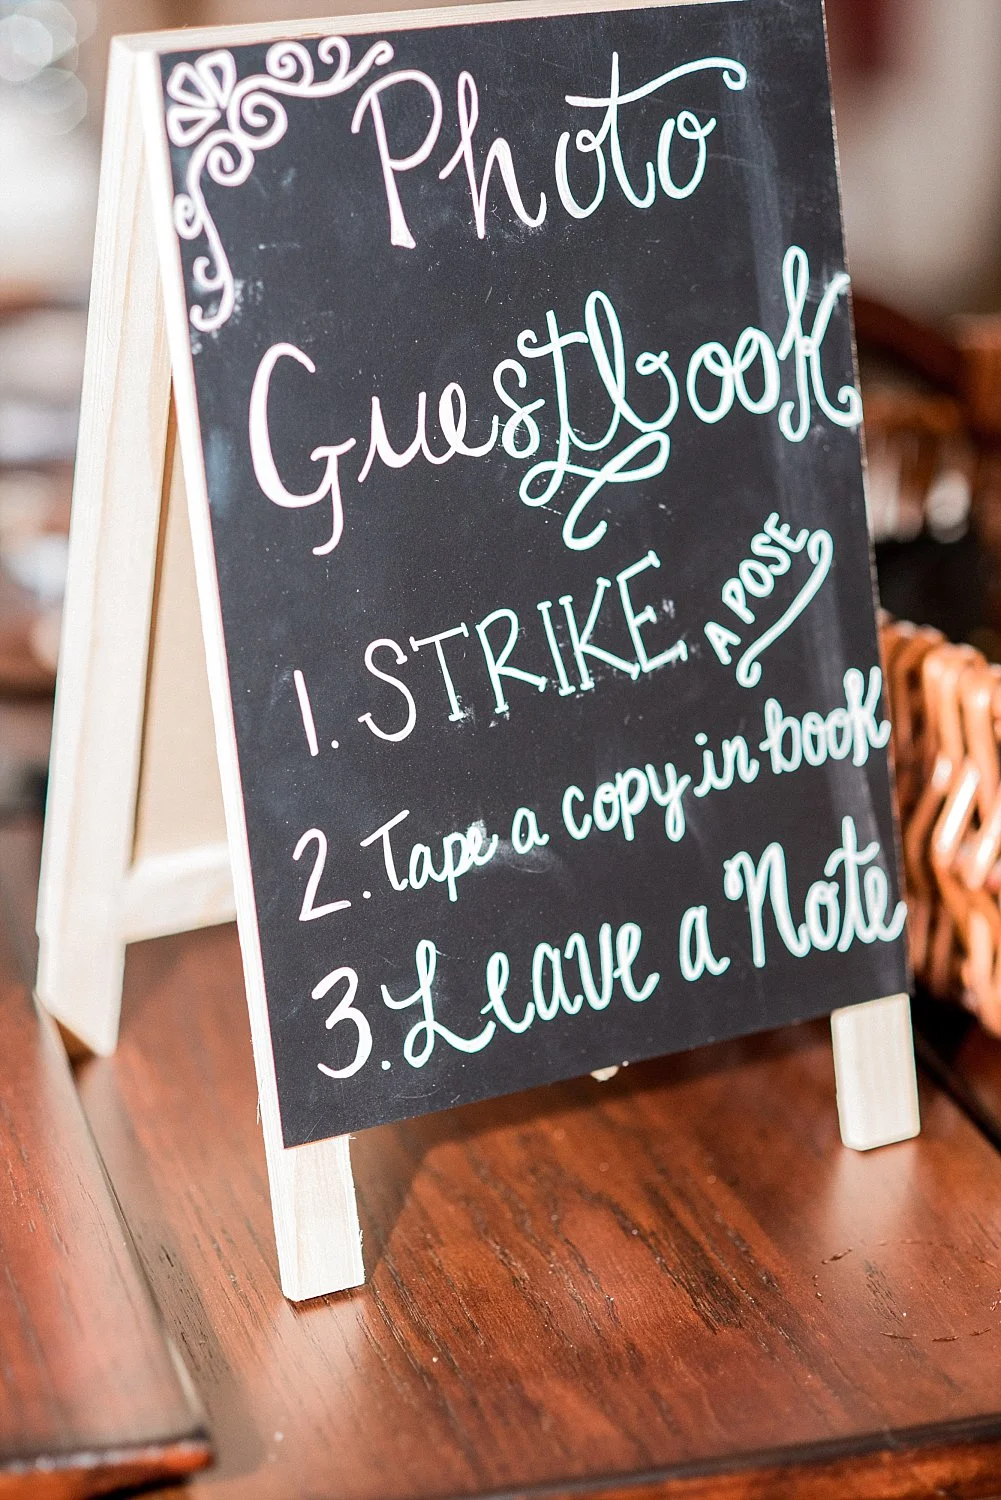 Photo
Guestbook
1. STRIKE A POSE
2. Tape a copy in book
3. Leave a Note